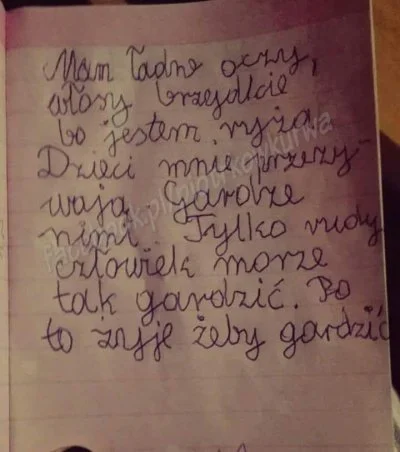 Mam ładne oczy,
włosy brzydkie
bo jestem ryża.
Dzieci mnie przezy-
wają. Gardzę
nimi. Tylko rudy
człowiek morze
tak gardzić. Bo
to żyje żeby gardzić